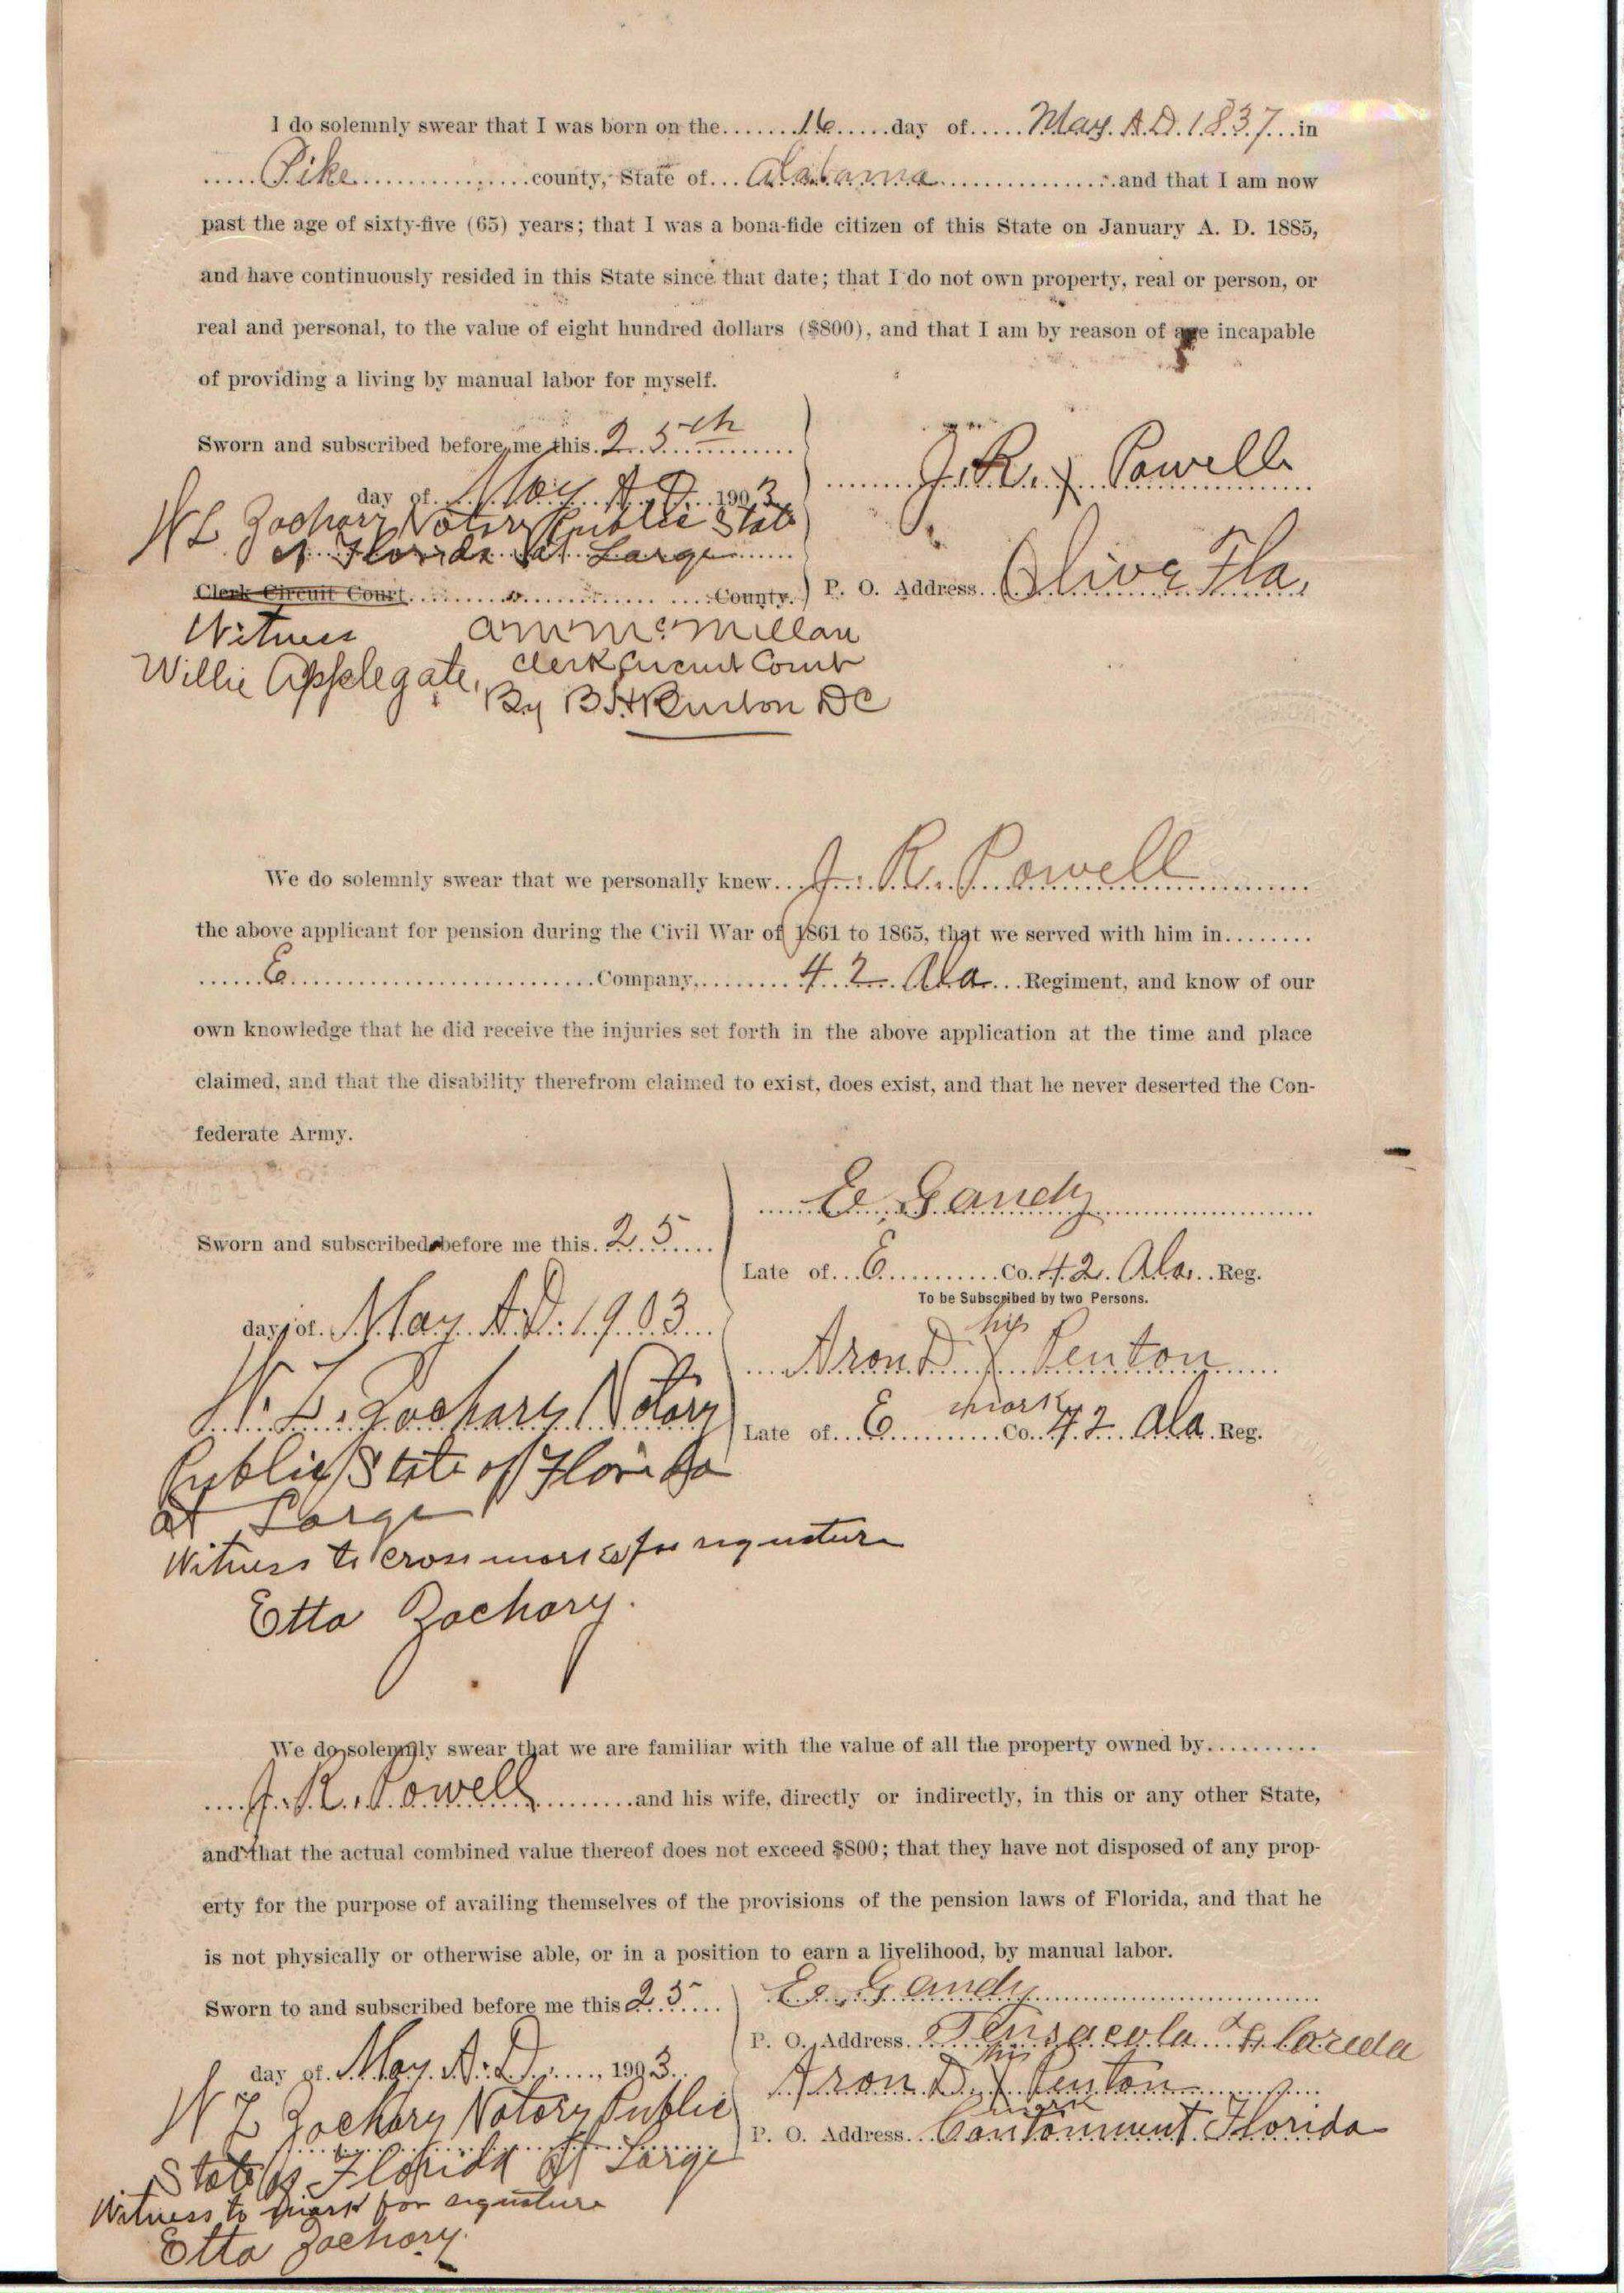 I do solemnly swear that I was born on the.......16.....day of.....May. A.D. 1837...in
.....Pike.................county, State of...Alabama..................and that I am now
past the age of sixty-five (65) years; that I was a bona-fide citizen of this State on January A. D. 1885,
and have continuously resided in this State since that date; that I do not own property, real or person, or
real and personal, to the value of eight hundred dollars ($800), and that I am by reason of age incapable
of providing a living by manual labor for myself.
Sworn and subscribed before me this. 25th
day of. May A.D. 1903
J. R. x Powell
W L Zachary Notary Public State
of Florida at Large
Clerk Circuit Court. County.
P. O. Address. Olive Fla.
Witness
Willie Applegate,
A M McMillan
Clerk Circuit Court
By DC
We do solemnly swear that we personally knew...J. R. Powell
the above applicant for pension during the Civil War of 1861 to 1865, that we served with him in........
......E............................Company,.........42 Ala...Regiment, and know of our
own knowledge that he did receive the injuries set forth in the above application at the time and place
claimed, and that the disability therefrom claimed to exist, does exist, and that he never deserted the Con-
federate Army.
E. Gandy
Sworn and subscribed before me this. 25
Late of...E...........Co. 42. Ala...Reg.
To be Subscribed by two Persons.
day of. May A.D. 1903
his
Aron D x Penton
mark
W. L. Zachary Notary
Late of...E...........Co. 42 Ala. Reg.
Public State of Florida
at Large
Witness to cross mark for signature
Etta Zachary.
We do solemnly swear that we are familiar with the value of all the property owned by..........
....J. R. Powell..........and his wife, directly or indirectly, in this or any other State,
and that the actual combined value thereof does not exceed $800; that they have not disposed of any prop-
erty for the purpose of availing themselves of the provisions of the pension laws of Florida, and that he
is not physically or otherwise able, or in a position to earn a livelihood, by manual labor.
Sworn to and subscribed before me this 25
E. Gandy
P. O. Address. Pensacola Florida
day of. May A.D....., 1903
his
Aron D x Penton
mark
W L Zachary Notary Public
P. O. Address. Cantonment Florida
State of Florida at Large
Witness to mark for signature
Etta Zachary.